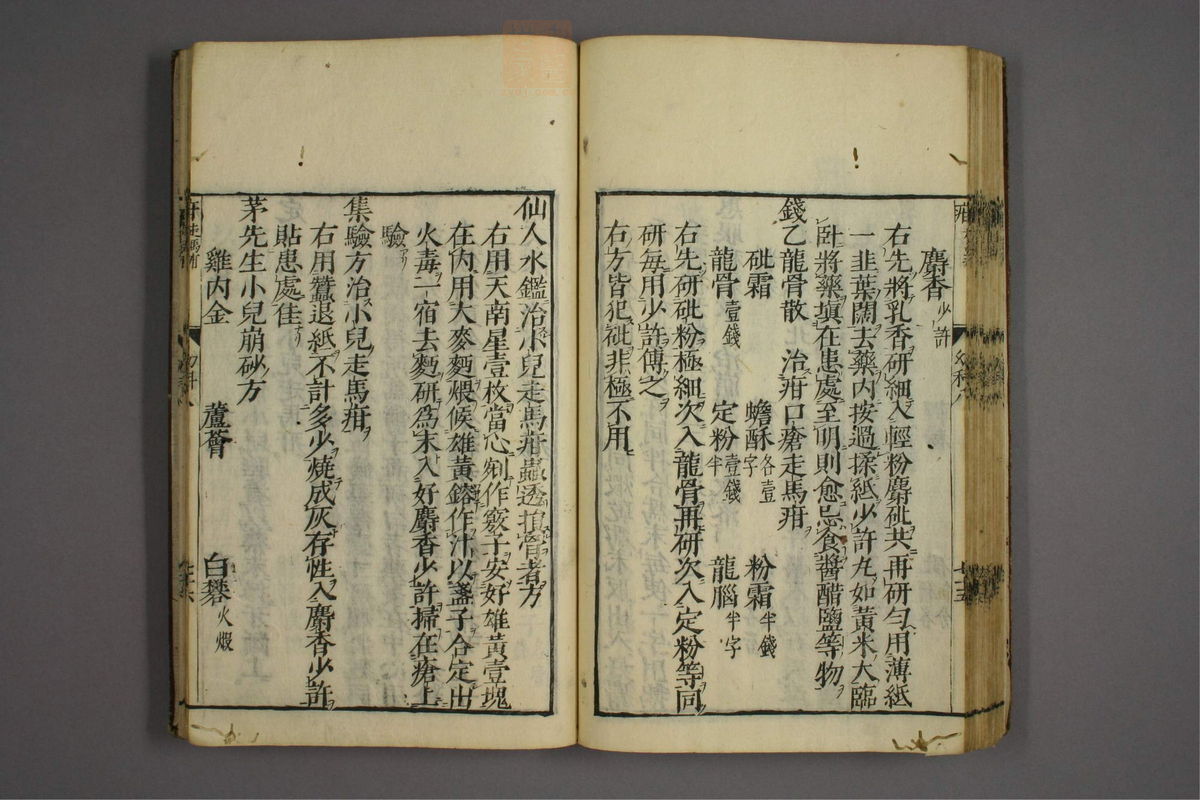 麝香少許
右先將乳香研細入輕粉麝砒共再研勻用薄紙
一韭葉闊去藥內按過揉紙少許丸如黃米大臨
臥將藥填在患處至明則愈忌食醬醋鹽等物
錢乙龍骨散 治疳口瘡走馬疳
砒霜 蟾酥各壹字 粉霜半錢
龍骨壹錢 定粉壹錢半 龍腦半字
右先研砒粉極細次入龍骨再研次入定粉等同
研每用少許傅之
右方皆犯砒非極不用
仙人水鑑治小兒走馬疳蟲透損骨者方
右用天南星壹枚當心剜作竅子安好雄黃壹塊
在內用大麥麪煨候雄黃鎔作汁以盞子合定出
火毒一宿去麪研為末入好麝香少許掃在瘡上
驗
集驗方治小兒走馬疳
右用蠶退紙不計多少燒成灰存性入麝香少許
貼患處佳
茅先生小兒崩砂方
雞內金 蘆薈 白礬火煅